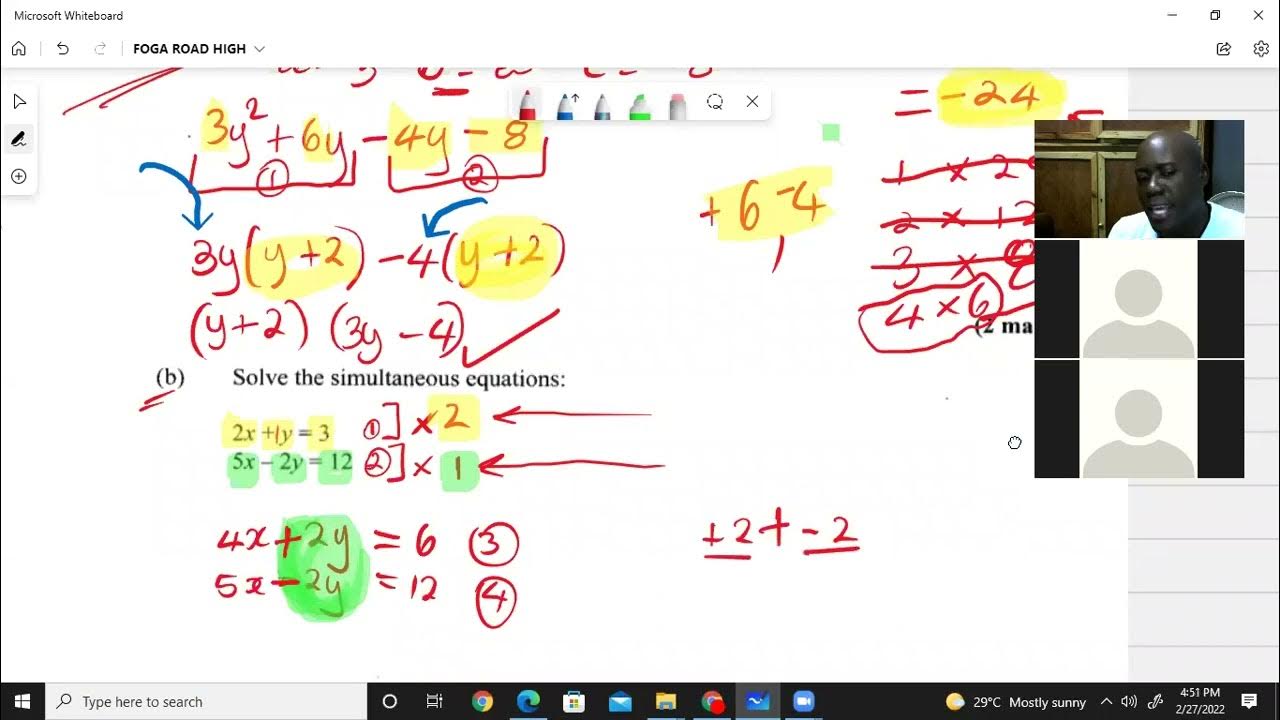 Microsoft Whiteboard
FOGA ROAD HIGH
= -24
3y² + 6y - 4y - 8
① ②
1 × 2
+ 6 -4
2 × 12
3y(y+2) -4(y+2)
3 × 8
4 × 6
(y+2) (3y -4)
(2 ma
(b) Solve the simultaneous equations:
2x +1y = 3 ①] × 2
5x – 2y = 12 ②] × 1
4x + 2y = 6 ③
+2 + -2
5x - 2y = 12 ④
Type here to search
29°C Mostly sunny
4:51 PM
2/27/2022